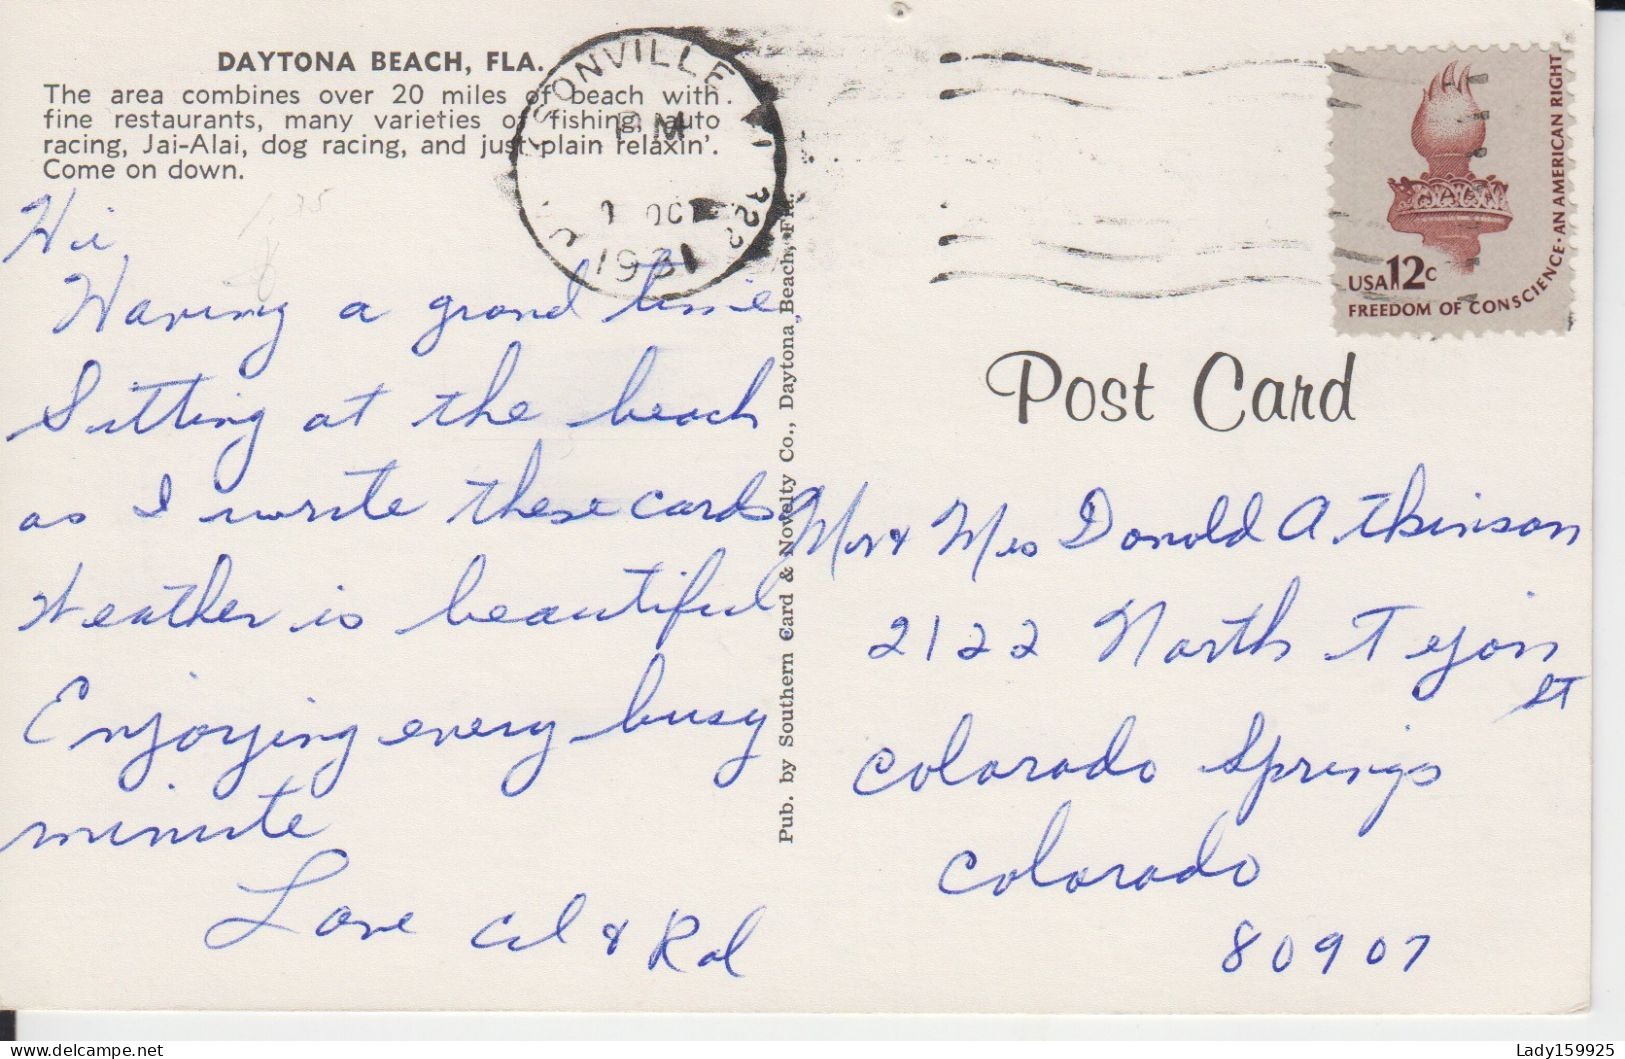 DAYTONA BEACH, FLA.
The area combines over 20 miles of beach with
fine restaurants, many varieties of fishing, auto
racing, Jai-Alai, dog racing, and just plain relaxin'.
Come on down.
Hi,
Having a grand time,
Sitting at the beach
as I write these cards
Weather is beautiful
Enjoying every busy
minute
Love Cil & Rol
Pub. by Southern Card & Novelty Co., Daytona Beach, Fla.
SONVILLE
PM
OC
1981
322
USA 12c
FREEDOM OF CONSCIENCE · AN AMERICAN RIGHT
Post Card
Mr & Mrs Donald Atkinson
2122 North Tejon
ST
Colorado Springs
Colorado
80907
Lady159925